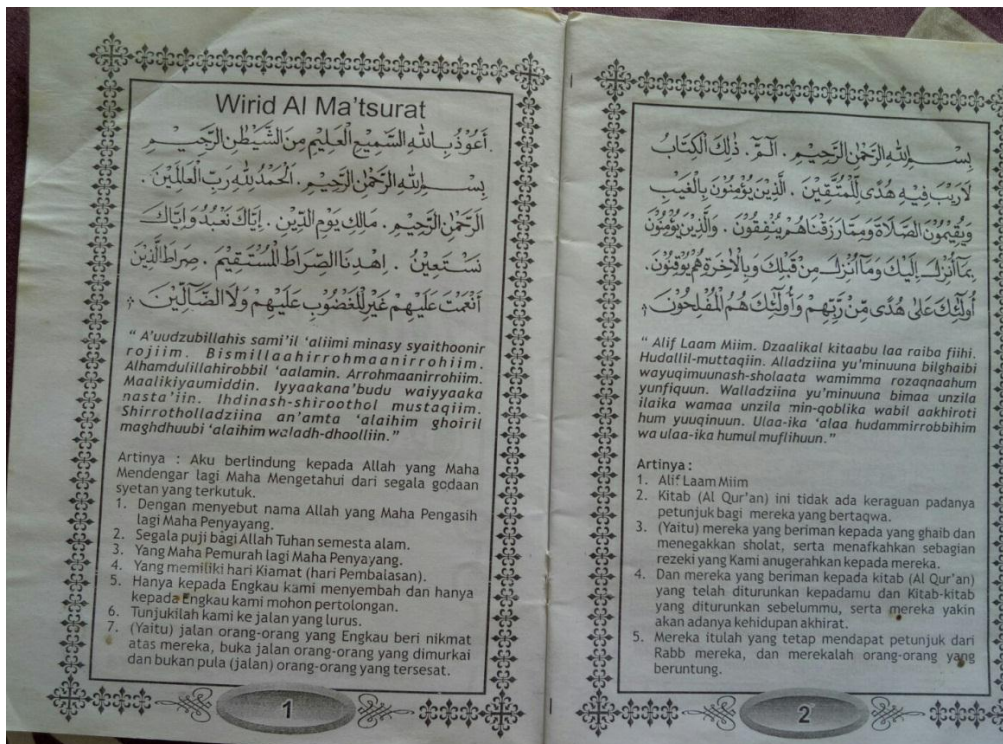 Wirid Al Ma'tsurat
أَعُوْذُ بِاللهِ السَّمِيْعِ الْعَلِيْمِ مِنَ الشَّيْطٰنِ الرَّجِيْمِ
بِسْمِ اللهِ الرَّحْمٰنِ الرَّحِيْمِ . اَلْحَمْدُ لِلّٰهِ رَبِّ الْعَالَمِيْنَ .
الرَّحْمٰنِ الرَّحِيْمِ . مَالِكِ يَوْمِ الدِّيْنِ . إِيَّاكَ نَعْبُدُ وَإِيَّاكَ
نَسْتَعِيْنُ . اِهْدِنَا الصِّرَاطَ الْمُسْتَقِيْمَ . صِرَاطَ الَّذِيْنَ
أَنْعَمْتَ عَلَيْهِمْ غَيْرِ الْمَغْضُوْبِ عَلَيْهِمْ وَلَا الضَّآلِّيْنَ
" A'uudzubillahis sami'il 'aliimi minasy syaithoonir
rojiim. Bismillaahirrohmaanirrohiim.
Alhamdulillahirobbil 'aalamin. Arrohmaanirrohiim.
Maalikiyaumiddin. Iyyaakana'budu waiyyaaka
nasta'iin. Ihdinash-shiroothol mustaqiim.
Shirrotholladziina an'amta 'alaihim ghoiril
maghdhuubi 'alaihim waladh-dhoolliin."
Artinya : Aku berlindung kepada Allah yang Maha
Mendengar lagi Maha Mengetahui dari segala godaan
syetan yang terkutuk.
1. Dengan menyebut nama Allah yang Maha Pengasih
lagi Maha Penyayang.
2. Segala puji bagi Allah Tuhan semesta alam.
3. Yang Maha Pemurah lagi Maha Penyayang.
4. Yang memiliki hari Kiamat (hari Pembalasan).
5. Hanya kepada Engkau kami menyembah dan hanya
kepada Engkau kami mohon pertolongan.
6. Tunjukilah kami ke jalan yang lurus.
7. (Yaitu) jalan orang-orang yang Engkau beri nikmat
atas mereka, buka jalan orang-orang yang dimurkai
dan bukan pula (jalan) orang-orang yang tersesat.
1
بِسْمِ اللهِ الرَّحْمٰنِ الرَّحِيْمِ . الٓمّٓ . ذٰلِكَ الْكِتَابُ
لَا رَيْبَ فِيْهِ هُدًى لِّلْمُتَّقِيْنَ . الَّذِيْنَ يُؤْمِنُوْنَ بِالْغَيْبِ
وَيُقِيْمُوْنَ الصَّلَاةَ وَمِمَّا رَزَقْنَاهُمْ يُنْفِقُوْنَ . وَالَّذِيْنَ يُؤْمِنُوْنَ
بِمَآ أُنْزِلَ إِلَيْكَ وَمَآ أُنْزِلَ مِنْ قَبْلِكَ وَبِالْاٰخِرَةِ هُمْ يُوْقِنُوْنَ .
أُولٰٓئِكَ عَلٰى هُدًى مِّنْ رَّبِّهِمْ وَأُولٰٓئِكَ هُمُ الْمُفْلِحُوْنَ
" Alif Laam Miim. Dzaalikal kitaabu laa raiba fiihi.
Hudallil-muttaqiin. Alladziina yu'minuuna bilghaibi
wayuqimuunash-sholaata wamimma rozaqnaahum
yunfiquun. Walladziina yu'minuuna bimaa unzila
ilaika wamaa unzila min-qoblika wabil aakhiroti
hum yuuqinuun. Ulaa-ika 'alaa hudammirrobbihim
wa ulaa-ika humul muflihuun."
Artinya :
1. Alif Laam Miim
2. Kitab (Al Qur'an) ini tidak ada keraguan padanya
petunjuk bagi mereka yang bertaqwa.
3. (Yaitu) mereka yang beriman kepada yang ghaib dan
menegakkan sholat, serta menafkahkan sebagian
rezeki yang Kami anugerahkan kepada mereka.
4. Dan mereka yang beriman kepada kitab (Al Qur'an)
yang telah diturunkan kepadamu dan Kitab-kitab
yang diturunkan sebelummu, serta mereka yakin
akan adanya kehidupan akhirat.
5. Mereka itulah yang tetap mendapat petunjuk dari
Rabb mereka, dan merekalah orang-orang yang
beruntung.
2